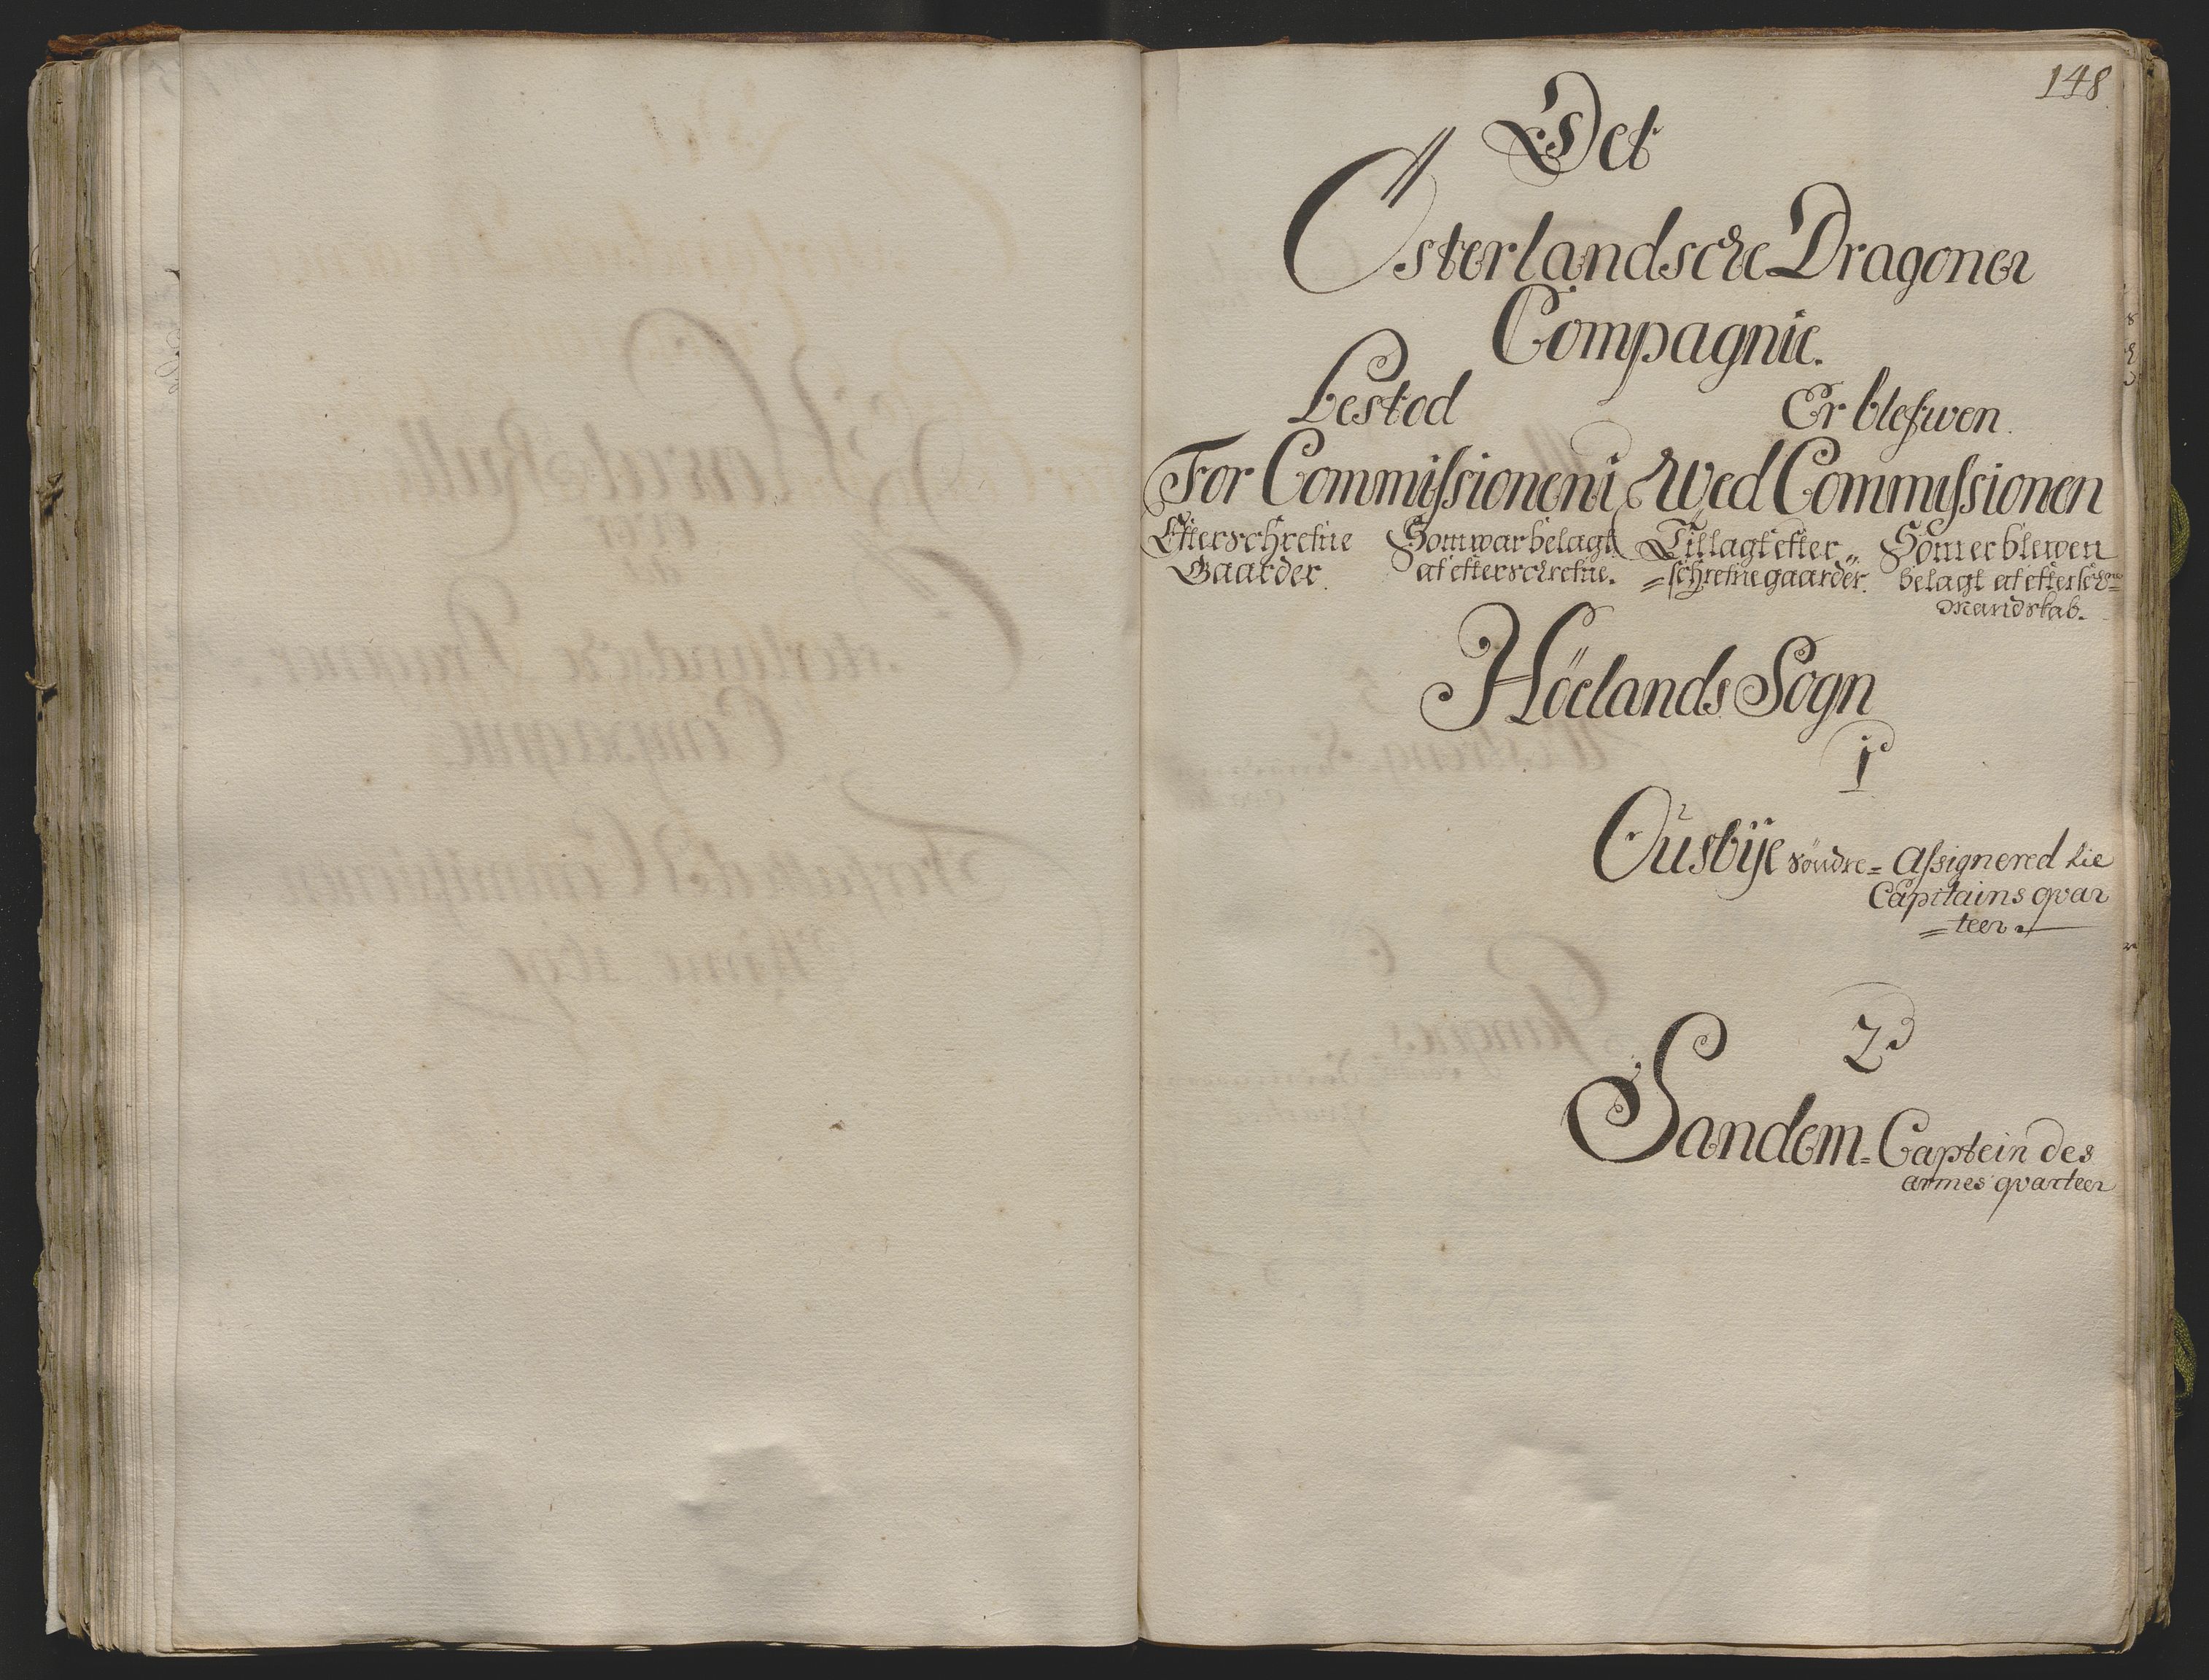 148
Det
Österlandsche Dragoner
Compagnie.
bestod
Er blefwen.
For Commissionen i
Wed Commissionen
Efterschrefne
Gaarder.
Som war belagt
af efterschrefne.
Tillagt efter
=schrefne gaarder.
Som er blewen
belagt af eftersch=
Mandskab.
Höelands Sogn
1
Ousbÿe söndre = Assignered die
Capitains qvar
=teer.
2
Sandem = Captein des
armes qvarteer